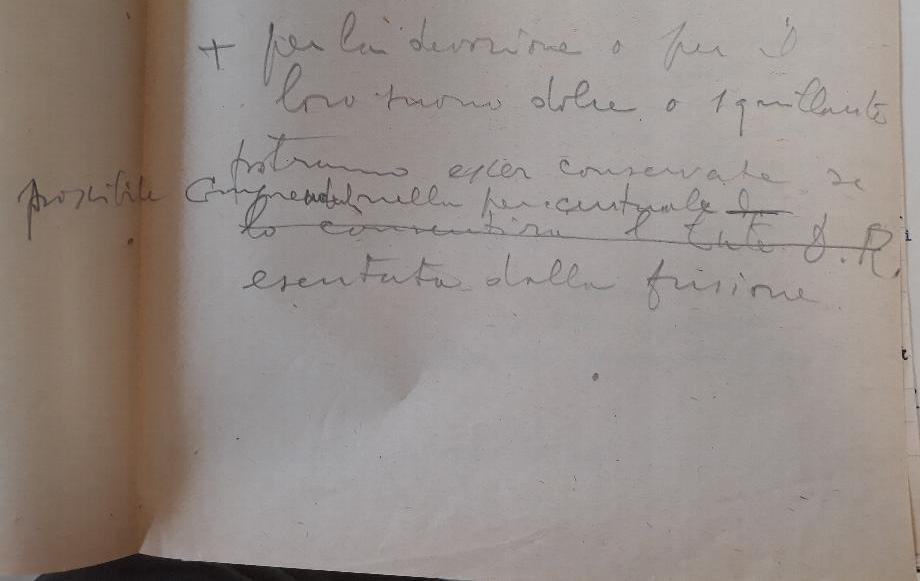 + per la devozione o per il
loro suono dolce o squillante
potranno esser conservate se
possibile comprendendole nella percentuale
lo consentira l'Ente D.R.
esentata dalla fusione